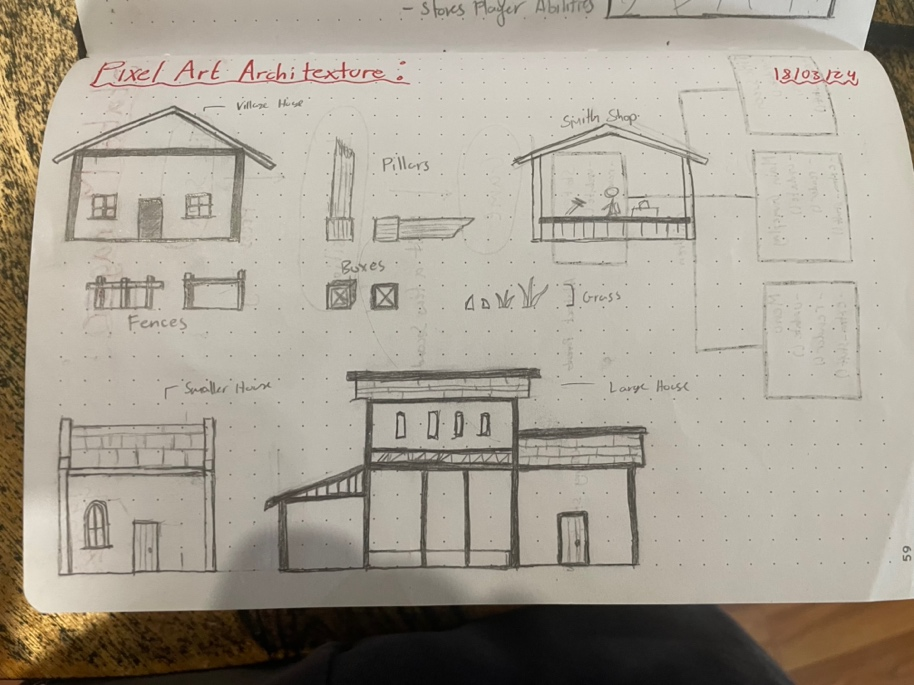 - Stores Player Abilities
Pixel Art Architexture:
18/03/24
Village House
Smith Shop
Pillars
Boxes
Grass
Fences
Smaller House
Large House
59